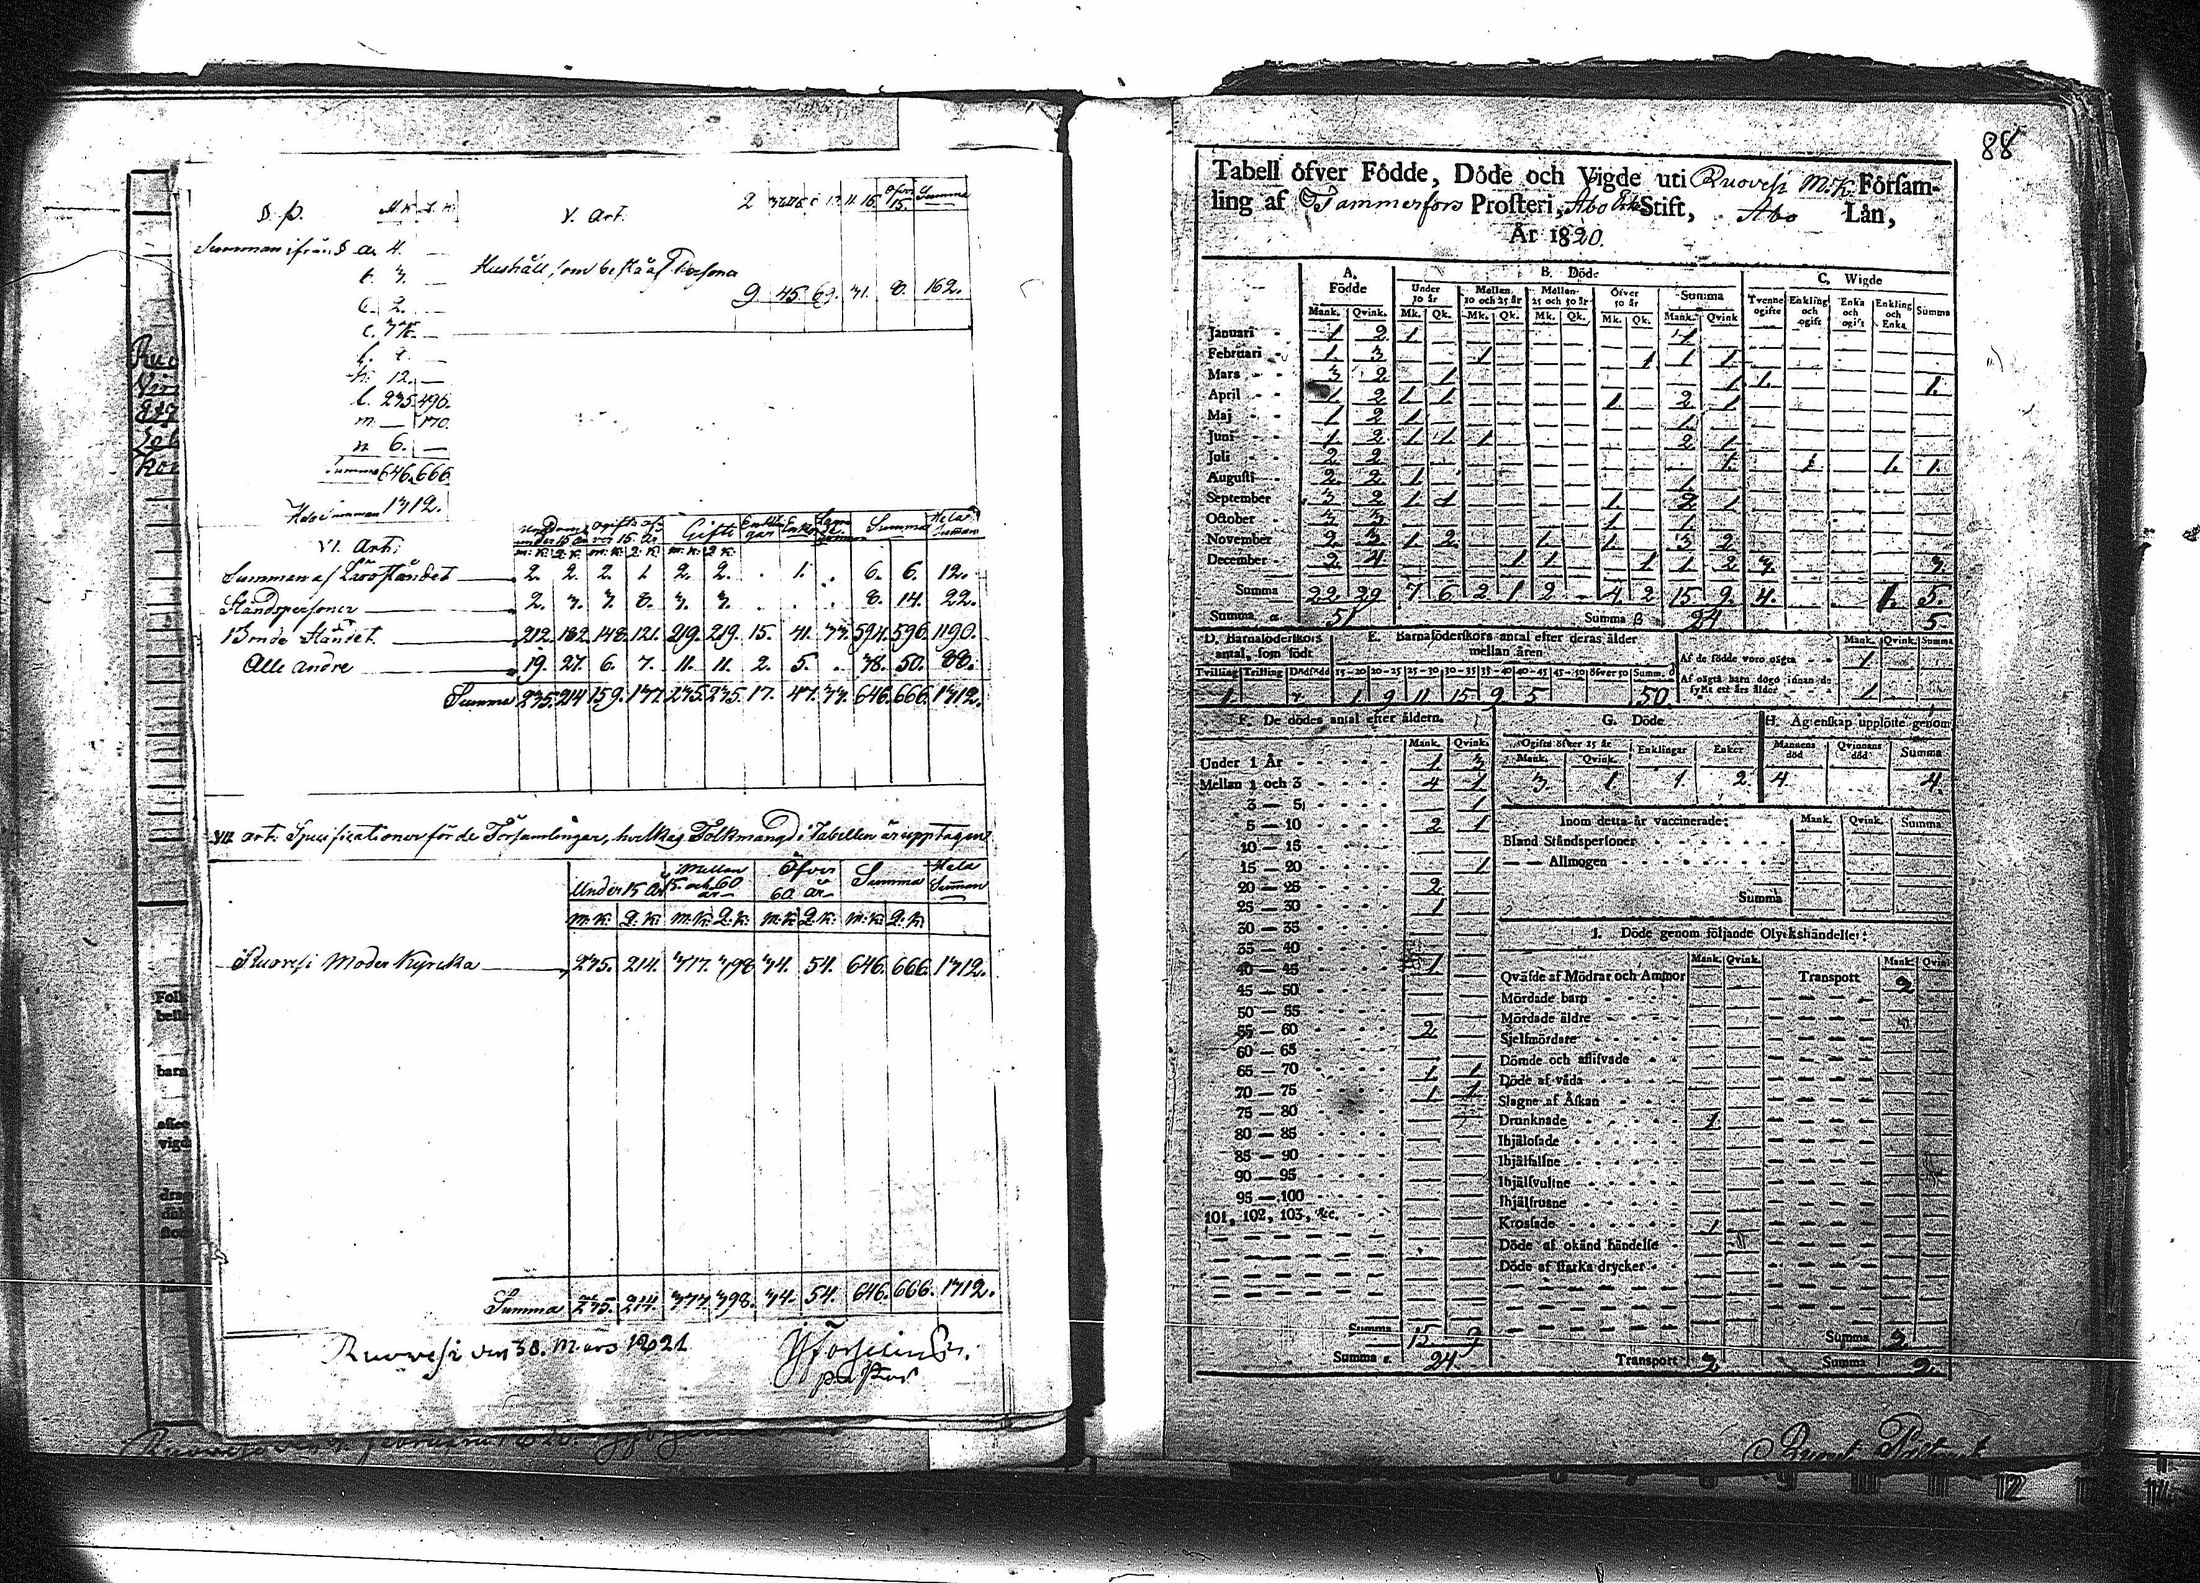 S. p. M.k. Q.k.
Summan ifrån S a. 4. —
b. 3. —
c. 2. —
l. 235. 496.
m. — 170.
n 6. —
Summa 646. 666
Hela Summan 1312.
V. Art.
Hushåll som bestå af Persona
Öfver 15. Summa
9. 45. 69. 31. 8. 162.
VI. Art.
Ungdom under 15 år Ogifta öfver 15 år Gifte Enklingar Enkor Summa Hela Summan
m.k. Q.k. m.k. Q.k. m.k. Q.k.
Summan af Läroståndet 2. 2. 2. 1. 2. 2. . 1. . 6. 6. 12.
Ståndspersoner 2. 3. 3. 8. 3. 3. . . . 8. 14. 22.
Bonde Ståndet 212. 182. 148. 121. 219. 219. 15. 41. 33. 594. 596. 1190.
Alle andre 19. 27. 6. 7. 11. 11. 2. 5. . 38. 50. 88.
Summa 235. 214 159. 137. 235. 235. 17. 47. 33. 646. 666. 1312.
VII. Art. Specificationer för de Församlingar, hvilkas Folkmängd i Tabellen är upptagen
Under 15 År Mellan 15 och 60 år Öfver 60 år Summa Hela Summan
m.k. Q.k. m.k. Q.k. m.k. Q.k. m.k. Q.k.
Ruovesi Moder Kyrcka 235. 214. 377. 398 34. 54. 646. 666. 1312.
Summa 235. 214. 377. 398. 34. 54. 646. 666. 1312.
Ruovesi den 30. Mars 1821
pastor
88
Tabell öfver Födde, Döde och Vigde uti Ruovesi M.K. Församling
ling af Tammerfors Prosteri, Åbo Stift, Åbo Län,
År 1820.
A. Födde B. Döde C. Wigde
Under 10 år Mellan 10 och 25 år Mellan 25 och 50 år Öfver 50 år Summa Tvenne ogifte Enkling och ogift Enka och ogift Enkling och Enka Summa
Mank. Qvink. Mk. Qk. Mk. Qk. Mk. Qk. Mk. Qk. Mank. Qvink
Januari 1 2 1 1
Februari 1 3 1 1 1 1
Mars 3 2 1 1 1. 1.
April 1 2 1 1 1. 2 1
Maj 1 2 1 1
Juni 1 2 1 1 1 2 1
Juli 2 2 1. 1. 1.
Augusti 2 2 1 1
September 3 2 1 1 1. 2 1
October 3 3 1 1
November 2 3 1 2 1 1. 3 2
December 2 4 1 1 1 1 2 3. 3.
Summa 22 29 7 6 2 1 2 - 4 2 15 9. 4. 1. 5.
Summa α 51 Summa ß 24 5.
D. Barnaföderskors antal, som födt
Tvilling Trilling Dödfödd
1.
E. Barnaföderskors antal efter deras ålder mellan åren
15—20 20—25 25—30 30—35 35—40 40—45 45—50 öfver 50 Summ.
1 9 11 15 9 5 50.
Mank. Qvink. Summa
Af de födde voro oägta 1
Af oägta barn dogo innan de fyllt ett års ålder 1
F. De dödas antal efter åldern.
Mank. Qvink.
Under 1 År 1 3
Mellan 1 och 3 4 1
3 — 5 1
5 — 10 2 1
10 — 15
15 — 20 1
20 — 25 2
25 — 30 1
30 — 35
35 — 40
40 — 45 1
45 — 50
50 — 55
55 — 60 2
60 — 65
65 — 70 1 1
70 — 75 1 1
75 — 80
80 — 85
85 — 90
90 — 95
95 — 100
101, 102, 103, &c.
Summa 15 9
Summa 24.
G. Döde
Ogifte öfver 25 år Enklingar Enkor
Mank. Qvink.
3. 1 1 2
H. Ägtenskap upplöste genom
Mannens död Qvinnans död Summa
4 4.
Inom detta år vaccinerade: Mank. Qvink. Summa
Bland Ståndspersoner
— — Allmogen
Summa
I. Döde genom följande Olyckshändelser:
Mank. Qvink.
Qväfde af Mödrar och Ammor
Mördade barn
Mördade äldre
Sjelfmördare
Dömde och aflifvade
Döde af våda
Slagne af Åskan
Drunknade 1
Ihjälsade
Ihjälfallne
Ihjälsvultne
Ihjälfrusne
Krossade 1
Döde af okänd händelse
Döde af starka drycker
Transport 2
Mank. Qvink
Transport 2
Summa 2.
Summa 2.